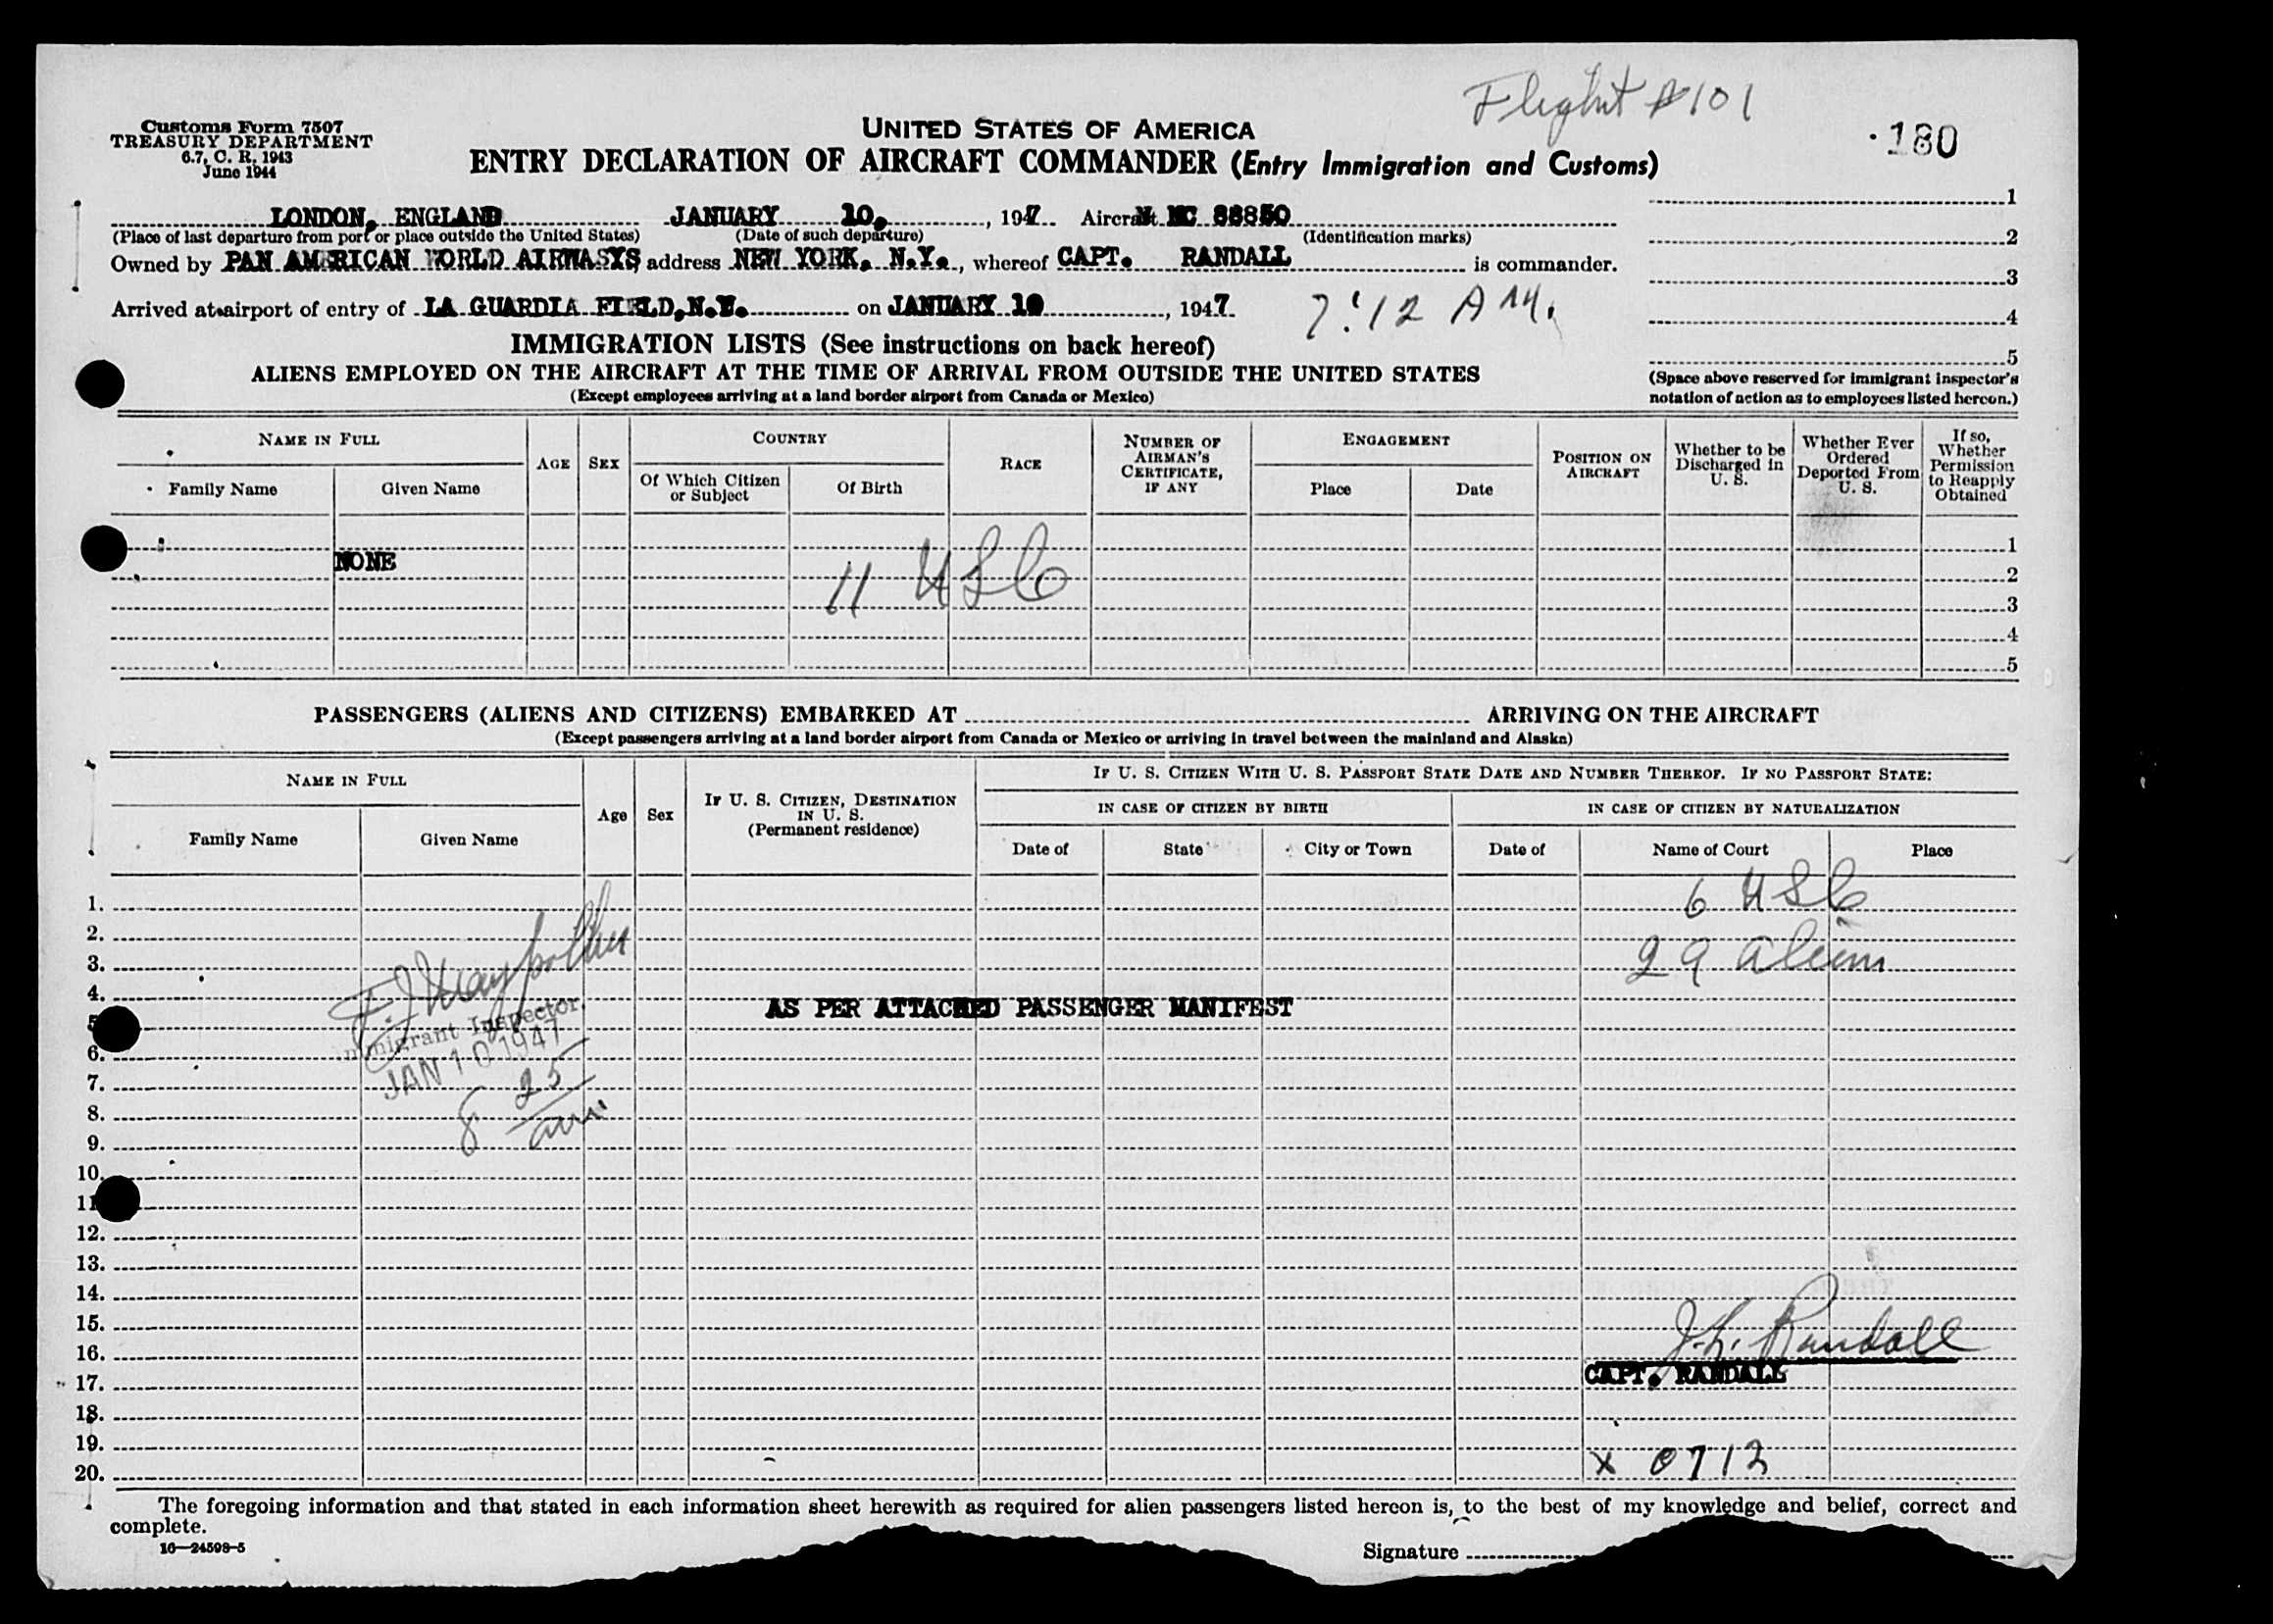 Flight #101
Customs Form 7507
TREASURY DEPARTMENT
6.7, C. R. 1943
June 1944
UNITED STATES OF AMERICA
180
ENTRY DECLARATION OF AIRCRAFT COMMANDER (Entry Immigration and Customs)
LONDON, ENGLAND JANUARY 10, , 1947 Aircraft NC 88850
(Place of last departure from port or place outside the United States) (Date of such departure) (Identification marks)
Owned by PAN AMERICAN WORLD AIRWASYS address NEW YORK, N.Y. , whereof CAPT. RANDALL is commander.
Arrived at airport of entry of LA GUARDIA FIELD, N.Y. on JANUARY 10 , 1947 7:12 AM.
1
2
3
4
5
(Space above reserved for immigrant inspector's
notation of action as to employees listed hereon.)
IMMIGRATION LISTS (See instructions on back hereof)
ALIENS EMPLOYED ON THE AIRCRAFT AT THE TIME OF ARRIVAL FROM OUTSIDE THE UNITED STATES
(Except employees arriving at a land border airport from Canada or Mexico)
NAME IN FULL
Family Name Given Name
AGE SEX
COUNTRY
Of Which Citizen or Subject
Of Birth
RACE
NUMBER OF AIRMAN'S CERTIFICATE, IF ANY
ENGAGEMENT
Place Date
POSITION ON AIRCRAFT
Whether to be Discharged in U. S.
Whether Ever Ordered Deported From U. S.
If so, Whether Permission to Reapply Obtained
1
NONE
2
11 USC
3
4
5
PASSENGERS (ALIENS AND CITIZENS) EMBARKED AT ARRIVING ON THE AIRCRAFT
(Except passengers arriving at a land border airport from Canada or Mexico or arriving in travel between the mainland and Alaska)
NAME IN FULL
Family Name Given Name
Age Sex
IF U. S. CITIZEN, DESTINATION IN U. S.
(Permanent residence)
IF U. S. CITIZEN WITH U. S. PASSPORT STATE DATE AND NUMBER THEREOF. IF NO PASSPORT STATE:
IN CASE OF CITIZEN BY BIRTH IN CASE OF CITIZEN BY NATURALIZATION
Date of State City or Town Date of Name of Court Place
1. 6 USC
2.
3. 29 Alien
4.
AS PER ATTACHED PASSENGER MANIFEST
5
Immigrant Inspector
6.
JAN 10 1947
7.
8 25 am
8.
9.
10.
11
12.
13.
14.
15.
J.L. Randall
16.
CAPT. RANDALL
17.
18.
19.
X 0712
20.
The foregoing information and that stated in each information sheet herewith as required for alien passengers listed hereon is, to the best of my knowledge and belief, correct and
complete.
16—24598-5
Signature